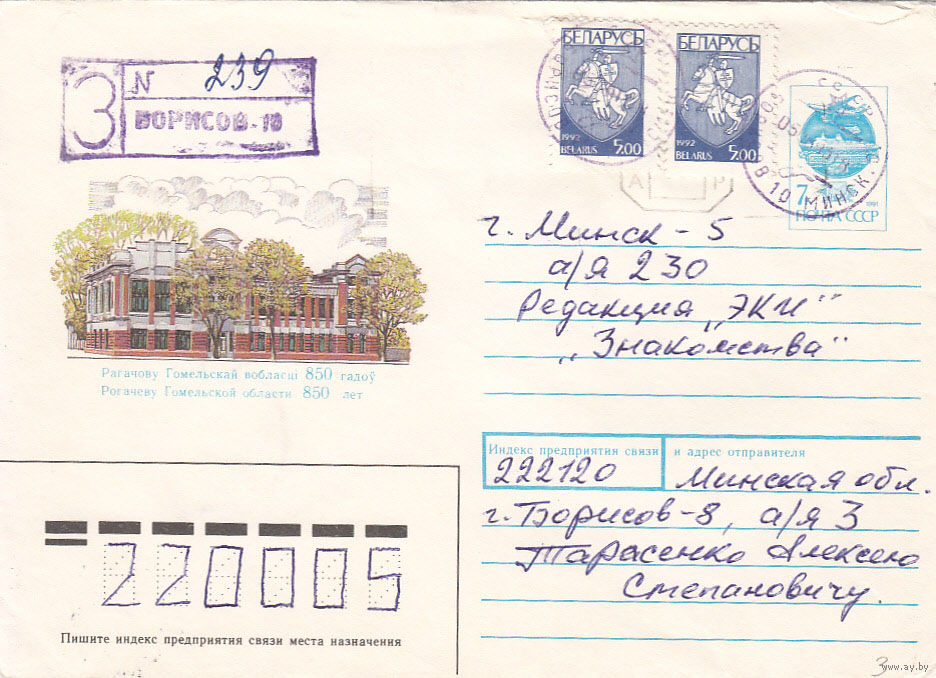 З
N 239
БОРИСОВ-10
БЕЛАРУСЬ
1992 5.00
BELARUS
БЕЛАРУСЬ
1992 5.00
BELARUS
7к 1991
ПОЧТА СССР
МИНСК.
А Р
г. Минск - 5
а/я 230
Редакция „ЭКИ"
„Знакомства"
Рагачову Гомельскай вобласці 850 гадоў
Рогачеву Гомельской области 850 лет
Индекс предприятия связи и адрес отправителя
222120 Минская обл.
г. Борисов-8, а/я 3
Тарасенко Алексею
Степановичу.
220005
Пишите индекс предприятия связи места назначения
3
www.ay.by